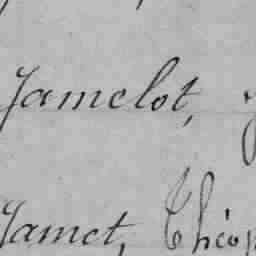 Jamelot,
Jamet, Théop